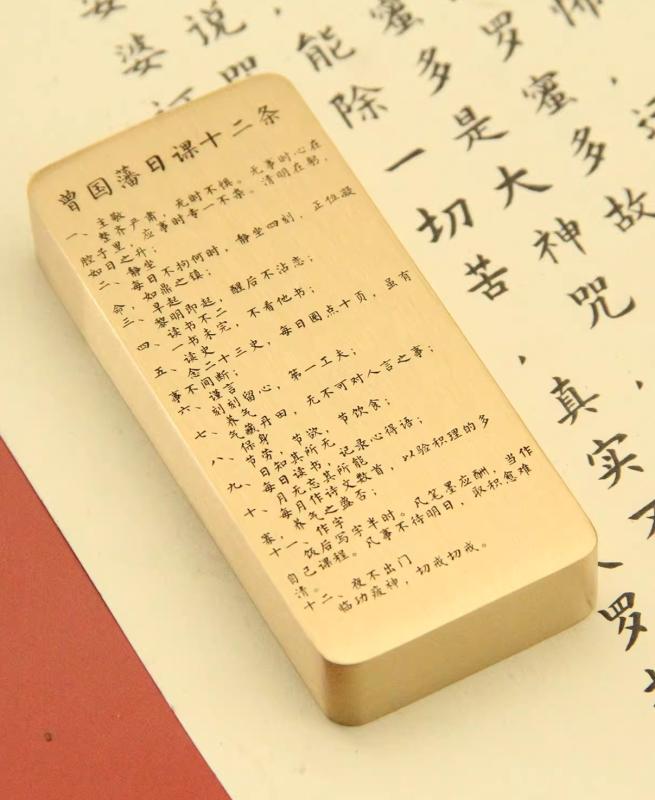 曾国藩日课十二条
一、主敬
整齐严肃，无时不惧。无事时心在
腔子里，应事时专一不杂。清明在躬，
如日之升；
二、静坐
每日不拘何时，静坐四刻，正位凝
命，如鼎之镇；
三、早起
黎明即起，醒后不沾恋；
四、读书不二
一书未完，不看他书；
五、读史
念二十三史，每日圈点十页，虽有
事不间断；
六、谨言
刻刻留心，第一工夫；
七、养气
气藏丹田，无不可对人言之事；
八、保身
节劳，节欲，节饮食；
九、日知其所无
每日读书，记录心得语；
十、月无忘其所能
每月作诗文数首，以验积理的多
寡，养气之盛否；
十一、作字
饭后写字半时。凡笔墨应酬，当作
自己课程。凡事不待明日，取积愈难
清。
十二、夜不出门
临功疲神，切戒切戒。
怖
罗蜜，多故
蜜多是大神咒，
能除一切苦，真实不
说，咒
婆
罗